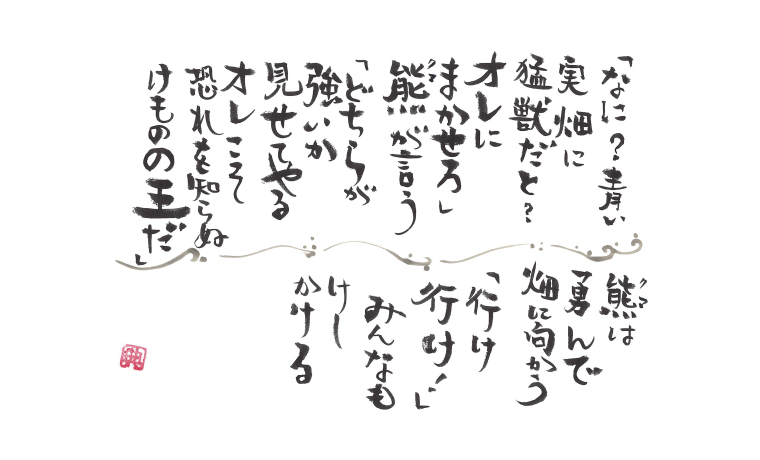 「なに?青い
実畑に
猛獣だと?
オレに
まかせろ」
熊が言う
クマ
「どちらが
強いか
見せてやる
オレこそ
恐れを知らぬ
けものの王だ」
熊は
クマ
勇んで
畑に向かう
「行け
行け!」
みんなも
けし
かける